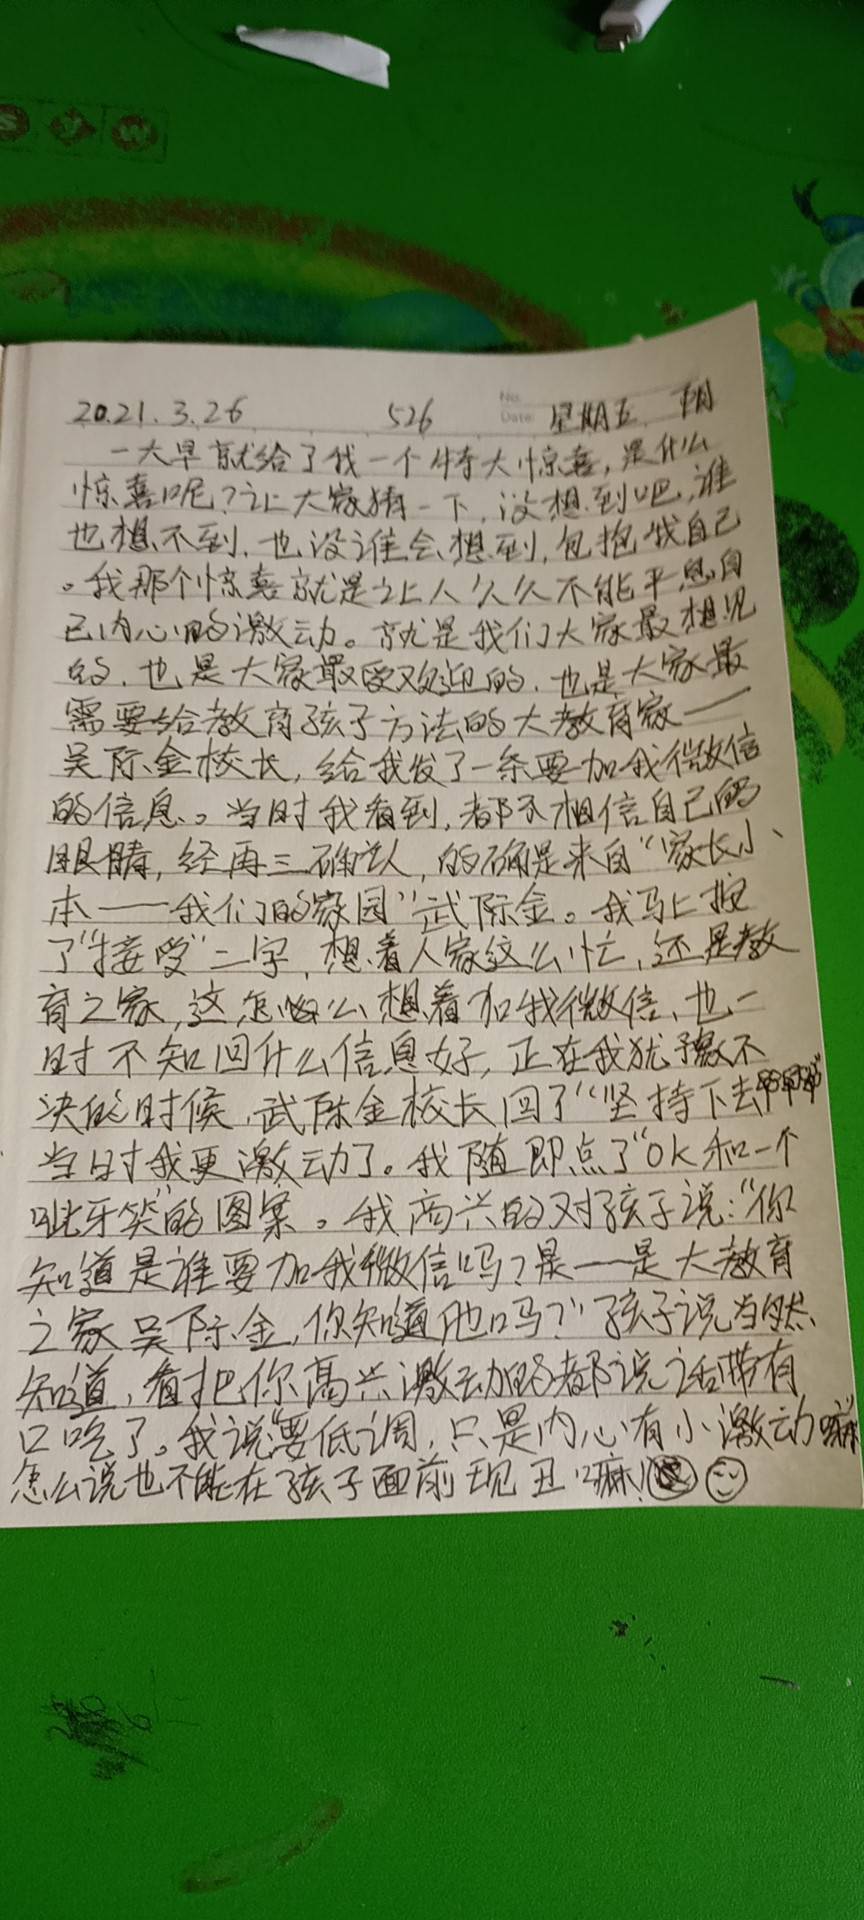 S Y W
No.
Date
2021.3.26 526 星期五 阴
一大早就给了我一个特大惊喜，是什么
惊喜呢？让大家猜一下，没想到吧，谁
也想不到，也没谁会想到，包抱我自己
。我那个惊喜就是让人久久不能平息自
己内心的激动。就是我们大家最想见
的，也是大家最受欢迎的，也是大家最
需要给教育孩子方法的大教育家——
吴际金校长，给我发了一条要加我微信
的信息。当时我看到，都不相信自己的
眼睛，经再三确认，的确是来自“家长小
本——我们的家园”武际金。我马上抱
了“接受”二字，想着人家这么忙，还是教
育之家，这怎么想着加我微信，也一
时不知回什么信息好，正在我犹豫不
决的时候，武际金校长回了“坚持下去
当时我更激动了。我随即点了“OK和一个
呲牙笑”的图案。我高兴的对孩子说：“你
知道是谁要加我微信吗？是——是大教育
之家吴际金，你知道他吗？”孩子说当然
知道，看把你高兴激动的都说话带有
口吃了。我说“要低调，只是内心有小激动嘛”
怎么说也不能在孩子面前现丑嘛！